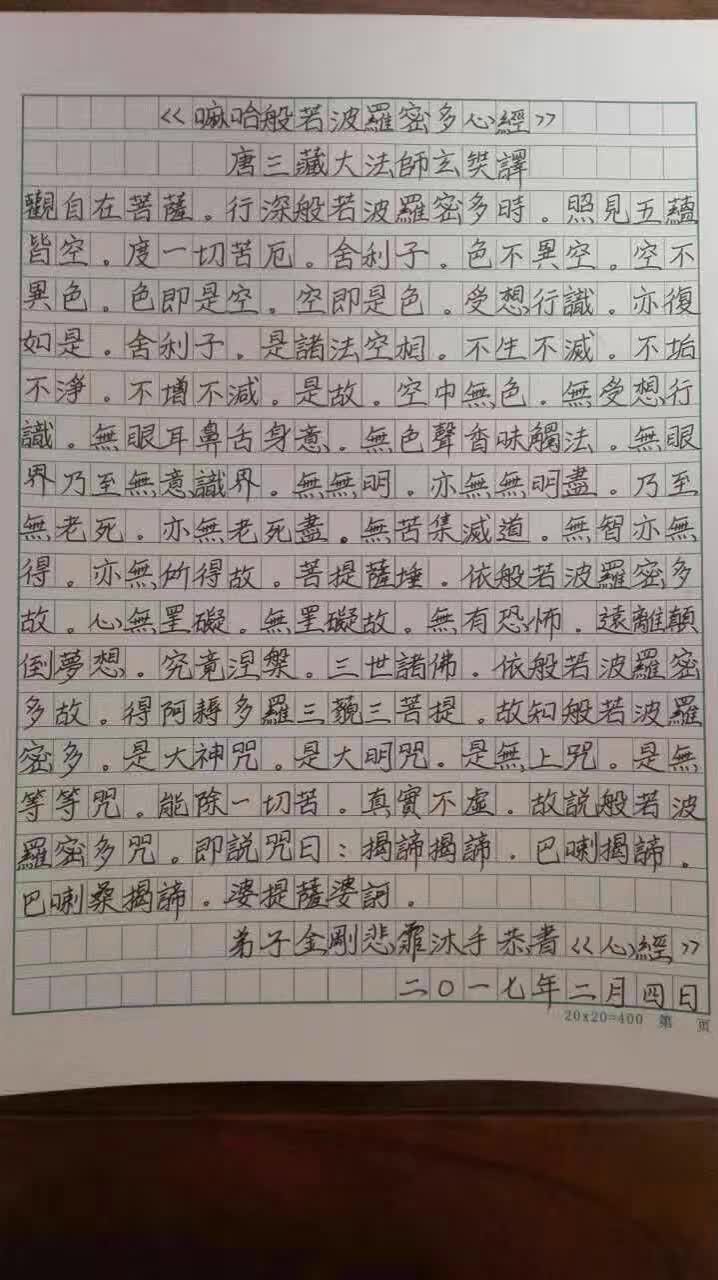 《嘛哈般若波羅密多心經》
唐三藏大法師玄奘譯
觀自在菩薩。行深般若波羅密多時。照見五蘊
皆空。度一切苦厄。舍利子。色不異空。空不
異色。色即是空。空即是色。受想行識。亦復
如是。舍利子。是諸法空相。不生不滅。不垢
不淨。不增不減。是故。空中無色。無受想行
識。無眼耳鼻舌身意。無色聲香味觸法。無眼
界乃至無意識界。無無明。亦無無明盡。乃至
無老死。亦無老死盡。無苦集滅道。無智亦無
得。亦無所得故。菩提薩埵。依般若波羅密多
故。心無罣礙。無罣礙故。無有恐怖。遠離顛
倒夢想。究竟涅槃。三世諸佛。依般若波羅密
多故。得阿耨多羅三藐三菩提。故知般若波羅
密多。是大神咒。是大明咒。是無上咒。是無
等等咒。能除一切苦。真實不虛。故說般若波
羅密多咒。即說咒曰：揭諦揭諦。巴喇揭諦。
巴喇桑揭諦。婆提薩婆訶。
弟子金剛悲霏沐手恭書《心經》
二〇一七年二月四日
20x20=400 第 页